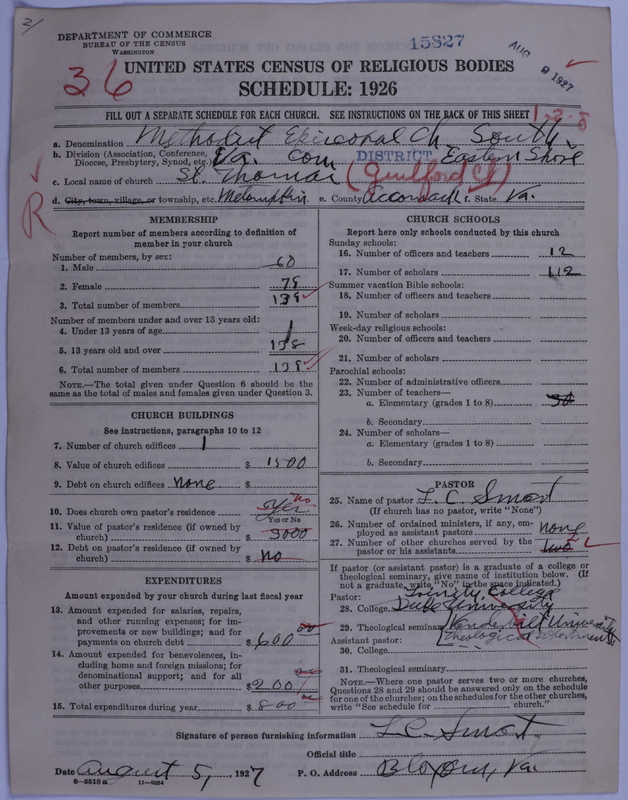 2/
DEPARTMENT OF COMMERCE
BUREAU OF THE CENSUS
WASHINGTON
15827
AUG 9 1927
36
UNITED STATES CENSUS OF RELIGIOUS BODIES
SCHEDULE: 1926
FILL OUT A SEPARATE SCHEDULE FOR EACH CHURCH. SEE INSTRUCTIONS ON THE BACK OF THIS SHEET
1-2-8
a. Denomination Methodist Episcopal Ch. South
b. Division (Association, Conference, Diocese, Presbytery, Synod, etc.) Va. Con DISTRICT Eastern Shore
c. Local name of church St. Thomas (Guilford Ch)
R
d. City, town, village, or township, etc. Metompkin e. County Accomack f. State Va.
MEMBERSHIP
Report number of members according to definition of
member in your church
Number of members, by sex:
1. Male 60
2. Female 79
3. Total number of members 139
Number of members under and over 13 years old:
4. Under 13 years of age 1
5. 13 years old and over 138
6. Total number of members 139
NOTE.—The total given under Question 6 should be
same as the total of males and females given under Question 3.
CHURCH BUILDINGS
See instructions, paragraphs 10 to 12
7. Number of church edifices 1
8. Value of church edifices $ 1500
9. Debt on church edifices None $
10. Does church own pastor's residence Yes no
Yes or No
11. Value of pastor's residence (if owned by
church) $ 3000
12. Debt on pastor's residence (if owned by
church) $ No
EXPENDITURES
Amount expended by your church during last fiscal year
13. Amount expended for salaries, repairs,
and other running expenses; for im-
provements or new buildings; and for
payments on church debt $ 600 00
14. Amount expended for benevolences, in-
cluding home and foreign missions; for
denominational support; and for all
other purposes $ 200
15. Total expenditures during year $ 800
CHURCH SCHOOLS
Report here only schools conducted by this church
Sunday schools:
16. Number of officers and teachers 12
17. Number of scholars 112
Summer vacation Bible schools:
18. Number of officers and teachers
19. Number of scholars
Week-day religious schools:
20. Number of officers and teachers
21. Number of scholars
Parochial schools:
22. Number of administrative officers
23. Number of teachers—
a. Elementary (grades 1 to 8)
b. Secondary
24. Number of scholars—
a. Elementary (grades 1 to 8)
b. Secondary
PASTOR
25. Name of pastor L. C. Smart
(If church has no pastor, write "None")
26. Number of ordained ministers, if any, em-
ployed as assistant pastors none
27. Number of other churches served by the
pastor or his assistants two 2
If pastor (or assistant pastor) is a graduate of a college or
theological seminary, give name of institution below. (If
not a graduate, write "No" in the space indicated.)
Pastor: Trinity College
28. College Duke University
29. Theological seminary Vanderbilt University
Assistant pastor: Theological Department
30. College
31. Theological seminary
NOTE.—Where one pastor serves two or more churches,
Questions 28 and 29 should be answered only on the schedule
for one of the churches; on the schedules for the other churches,
write "See schedule for church."
Signature of person furnishing information L. C. Smart
Official title
Date August 5, 1927 P. O. Address Bloxom, Va.
8-5515a 11-9084